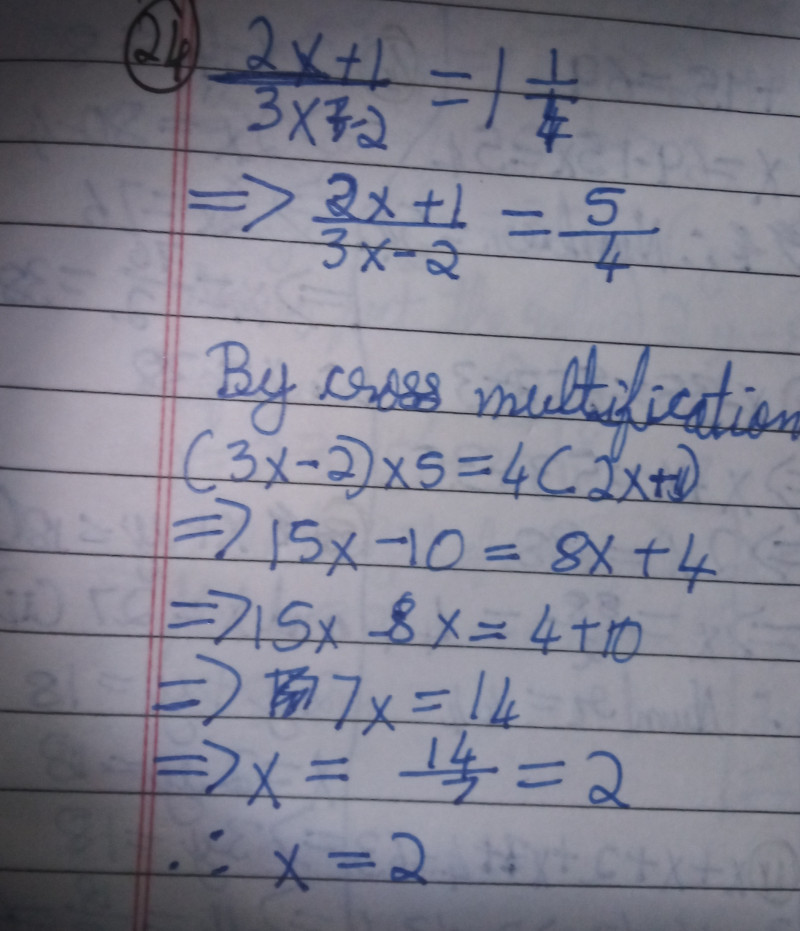 24 (2x+1)/(3x-2) = 1 1/4
=> (2x+1)/(3x-2) = 5/4
By cross multification
(3x-2)x5=4(2x+1)
=> 15x-10 = 8x+4
=> 15x-8x = 4+10
=> 7x=14
=> x = 14/7 = 2
∴ x = 2